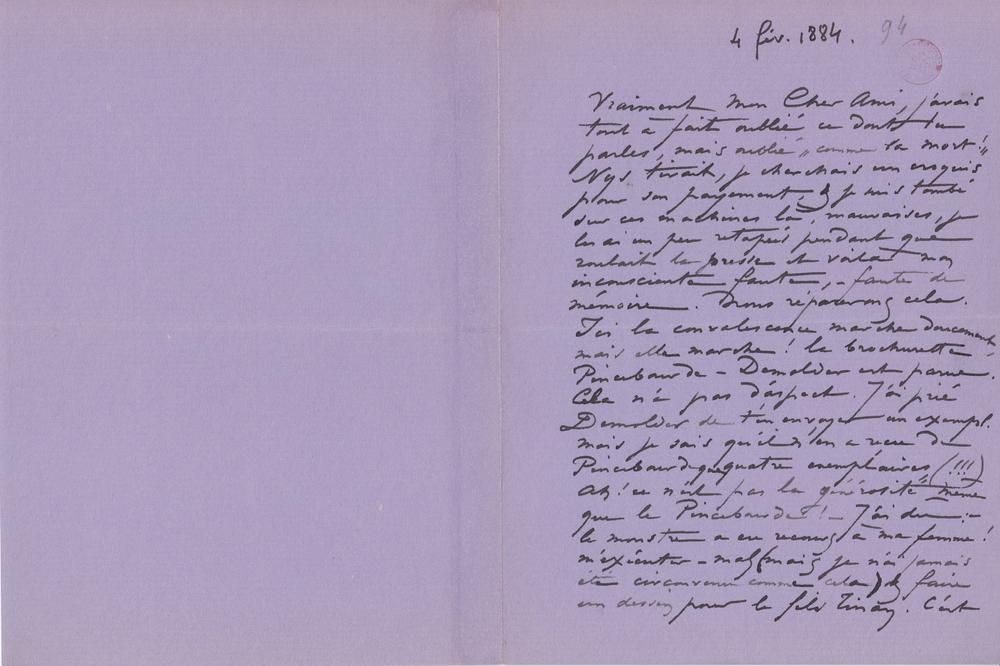 4 fév. 1884.
94
Vraiment mon Cher Ami, j'avais
tout à fait oublié ce dont tu
parles, mais oublié „comme la mort!"
Nys tirait, je cherchais un croquis
pour son payement, & je suis tombé
sur ces machines là, mauvaises, je
les ai un peu retapées pendant que
roulait la presse et voilà mon
inconsciente faute, - faute de
mémoire. Nous réparerons cela.
Ici la convalescence marche doucement,
mais elle marche! la brochurette
Pincebourde - Demolder est parue.
Cela n'a pas d'aspect. J'ai prié
Demolder de t'en envoyer un exempl.
mais je sais qu'il n'en a reçu de
Pincebourde que quatre exemplaires (!!!)
Ah! ce n'est pas la générosité même
que le Pincebourde! - J'ai dû :-
le monstre a eu recours à ma femme!
m'exécuter - mal (mais je n'ai jamais
été circonvenu comme cela) & faire
un dessin pour le fils Tinan. C'est